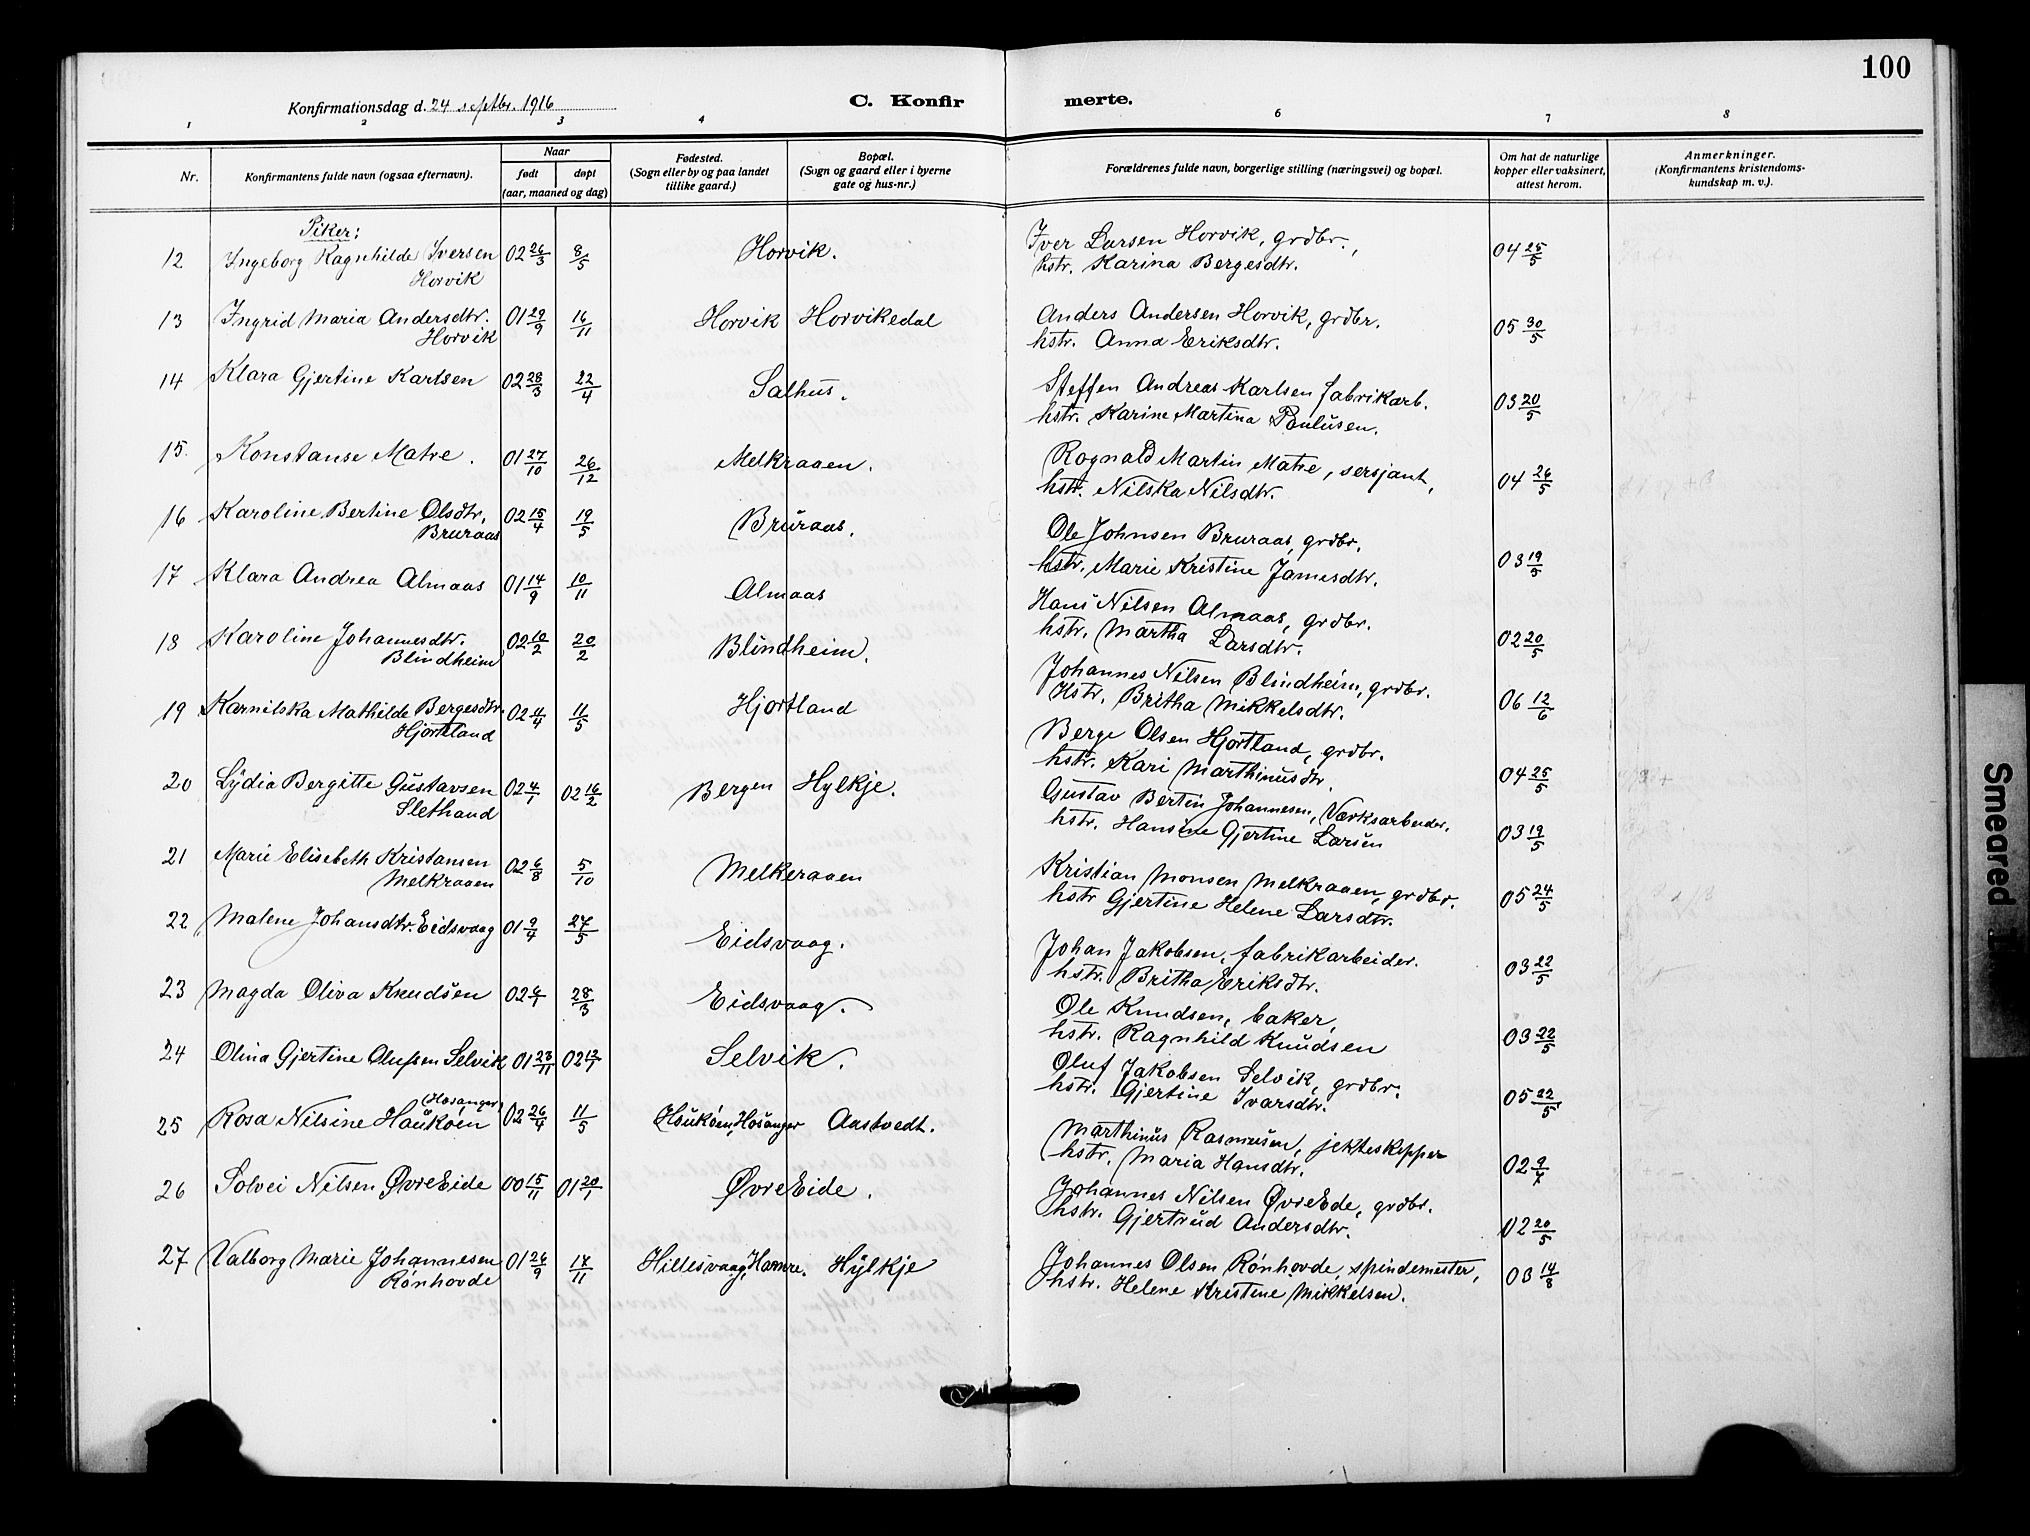 100
Konfirmationsdag d. 24 septbr. 1916
C. Konfir
merte.
1 2 3 4 6 7 8
Nr.
Konfirmantens fulde navn (ogsaa efternavn).
Naar
født døpt
(aar, maaned og dag)
Fødested.
(Sogn eller by og paa landet
tillike gaard.)
Bopæl.
(Sogn og gaard eller i byerne
gate og hus-nr.)
Forældrenes fulde navn, borgerlige stilling (næringsvei) og bopæl.
Om hat de naturlige
kopper eller vaksinert,
attest herom.
Anmerkninger.
(Konfirmantens kristendoms-
kundskap m. v.).
Piker:
12 Ingeborg Ragnhilde Iversen 02 26/3 8/5 Horvik. Iver Larsen Horvik, grdbr., 04 25/5
Horvik hstr. Karina Bergesdtr.
13 Ingrid Maria Andersdtr. 01 29/9 16/11 Horvik Horvikedal Anders Andersen Horvik, grdbr. 05 30/5
Horvik hstr. Anna Eriksdtr.
14 Klara Gjertine Karlsen 02 28/3 22/4 Salhus. Steffen Andreas Karlsen fabrikarb. 03 20/5
hstr. Karine Martina Paulusen.
15. Konstanse Matre. 01 27/10 26/12 Melkraaen. Rognald Martin Matre, sersjant, 04 26/5
hstr. Nilska Nilsdtr.
16 Karoline Bertine Olsdtr, 02 15/4 19/5 Bruraas. Ole Johnsen Bruraas, grdbr. 03 19/5
Bruraas hstr. Marie Kristine Jamesdtr.
17 Klara Andrea Almaas 01 14/9 10/11 Almaas Hans Nilsen Almaas, grdbr. 02 20/5
hstr. Martha Larsdtr.
18 Karoline Johannesdtr. 02 10/2 20/2 Blindheim. Johannes Nilsen Blindheim, grdbr. 06 12/6
Blindheim Hstr. Britha Mikkelsdtr.
19 Karnilska Mathilde Bergesdtr. 02 4/4 11/5 Hjortland Berge Olsen Hjortland, grdbr. 04 25/5
Hjortland hstr. Kari Marthinusdtr.
20 Lydia Bergitte Gustavsen 02 4/1 02 16/2 Bergen Hylkje. Gustav Bertin Johannesen, Værksarbeider. 03 19/5
Slethaud hstr. Hansine Gjertine Larsen
21 Marie Elisebeth Kristansen 02 6/8 5/10 Melkeraaen Kristian Monsen Melkraaen, grdbr. 05 24/5
Melkraaen hstr Gjertine Helene Larsdtr.
22 Malene Johansdtr. Eidsvaag 01 9/4 27/5 Eidsvaag. Johan Jakobsen, fabrikarbeider. 03 22/5
hstr. Britha Eriksdtr.
23 Magda Oliva Knudsen 02 6/1 28/3 Eidsvaag. Ole Knudsen, baker, 03 22/5
hstr. Ragnhild Knudsen
24 Olina Gjertine Olufsen Selvik 01 23/11 02 12/1 Selvik. Oluf Jakobsen Selvik, grdbr. 05 22/5
hstr. Gjertine Ivarsdtr.
(Hosanger)
25 Rosa Nilsine Haukøen 02 26/4 11/5 Haukøen, Hosanger Aastvedt. Marthinus Rasmusen, jekteskipper 02 9/7
hstr. Maria Hansdtr.
26 Solvei Nilsen Øvre Eide 00 15/11 01 20/1 Øvre Eide. Johannes Nilsen Øvre Ede, grdbr. 02 20/5
hstr. Gjertrud Andersdtr.
27 Valborg Marie Johannesen 01 26/9 17/11 Hillesvaag, Hamre. Hylkje Johannes Olsen Rønhovde, spindemester, 03 14/8
Rønhovde hstr. Helene Kristine Mikkelsen.
Smeared